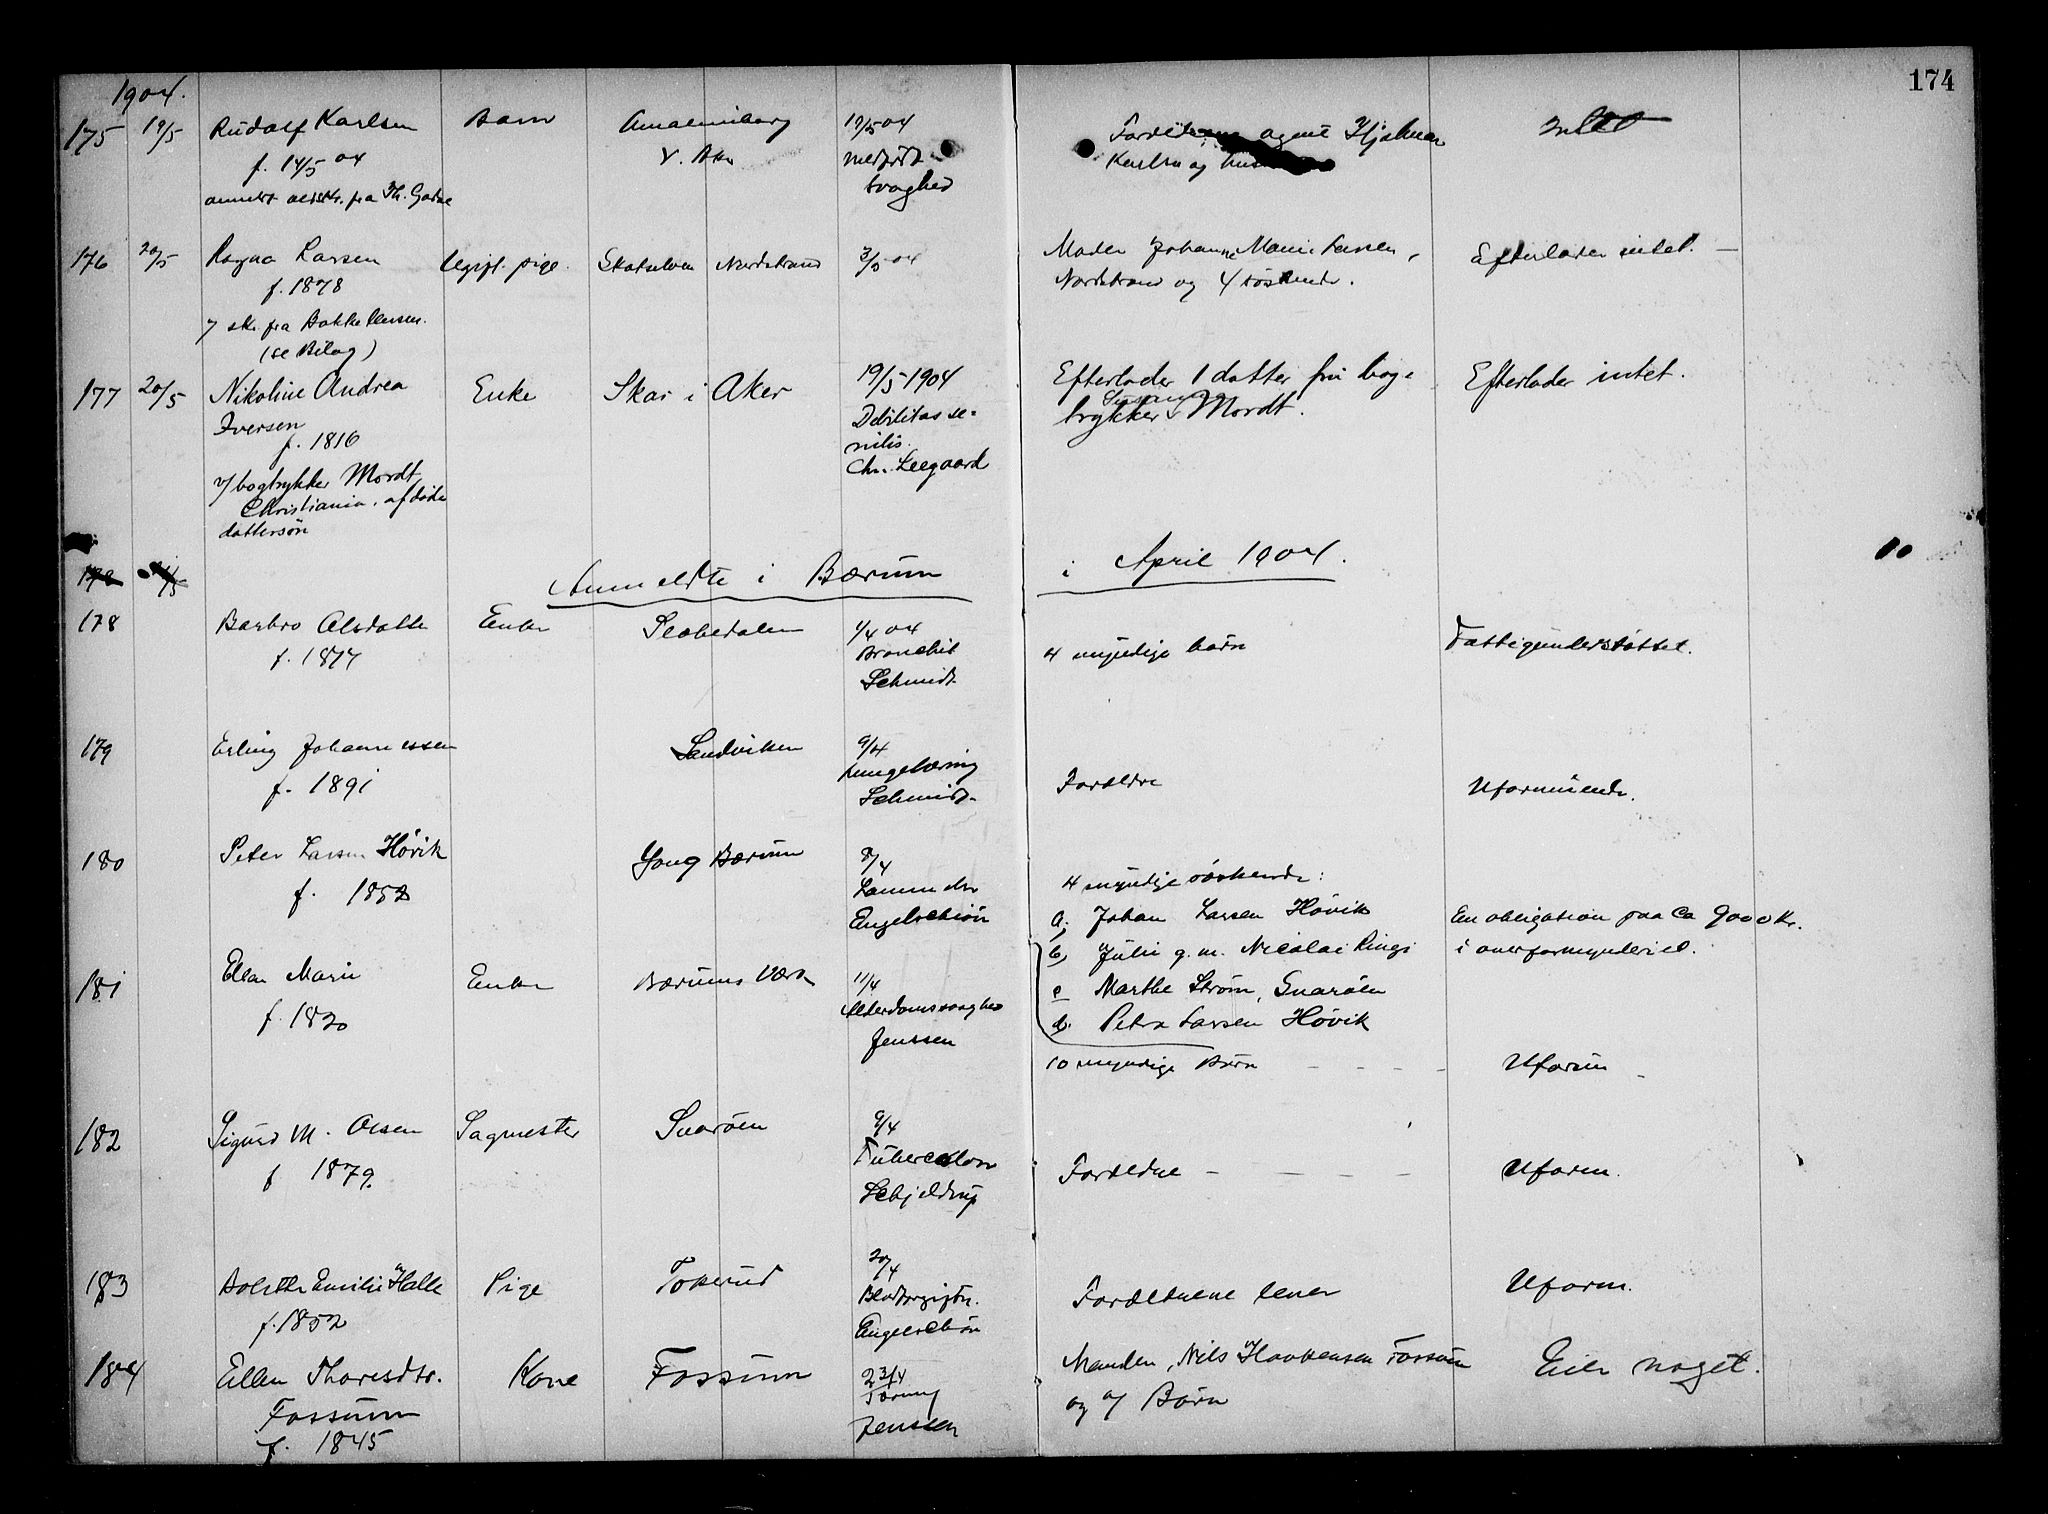 174
1904.
175 19/5 Rudolf Karlsen Barn Amalienborg 19/5 04 Forældrene agent Hjalmar Intet
f. 14/5 04 V. Aker medfødt Karlsen og
anmeldt fra Th. svaghed
176 20/5 Ragna Larsen Ugift pige. Nordstrand 3/5 04 Moder Johanne Marie Larsen, Efterlader intet. —
f. 1878 Nordstrand og 4 søskende.
7 skr. fra
(se Bilag)
177 20/5 Nikoline Andrea Enke Skar i Aker 19/5 1904 Efterlader 1 datter fru bog- Efterlader intet.
Iversen Debilitas se- trykker Mordt.
f. 1816 nilis.
v/ bogtrykker Mordt, Chr. Leegaard
Christiania, afdøde
dattersøn
178
Anmeldte i Bærum i April 1904.
178 Barbro Olsdatter Enke 1/4 04 4 myndige børn Fattigunderstøttet.
f. 1874 Bronchit
Schmidt
179 Erling Johannessen Sandviken 9/4 Forældre Uformuende.
f. 1891 Schmidt
180 Peter Larsen Høvik Bærum 8/4 4 myndige søskende:
f. 1852 Engelschiøn a, Johan Larsen Høvik En obligation paa ca 9000 Kr.
b, Julie g. m. Nicolai Ringi i overformynderiet.
181 Ellen Marie Enke Bærums Værk 11/4 c Marthe Strøm, Snarøen
f. 1820 Alderdomssvaghed d. Petra Larsen Høvik
Jenssen 10 myndige Børn - - - - Uform -
182 Sigurd M. Olsen Sagmester Snarøen 9/4
f 1879. Tuberculose Forældre - - - - Uform.
Schjeldrup
183 Emilie Halle Pige Tokerud 20/4 Forældrene lever Uform.
f. 1852 Blodforgiftn.
Engelschiøn
184 Ellen Thoresdtr. Kone Fossum 23/4 Manden, Nils Haakensen Fossum Eier noget.
Fossum Tæring og 7 Børn
f. 1845 Jenssen